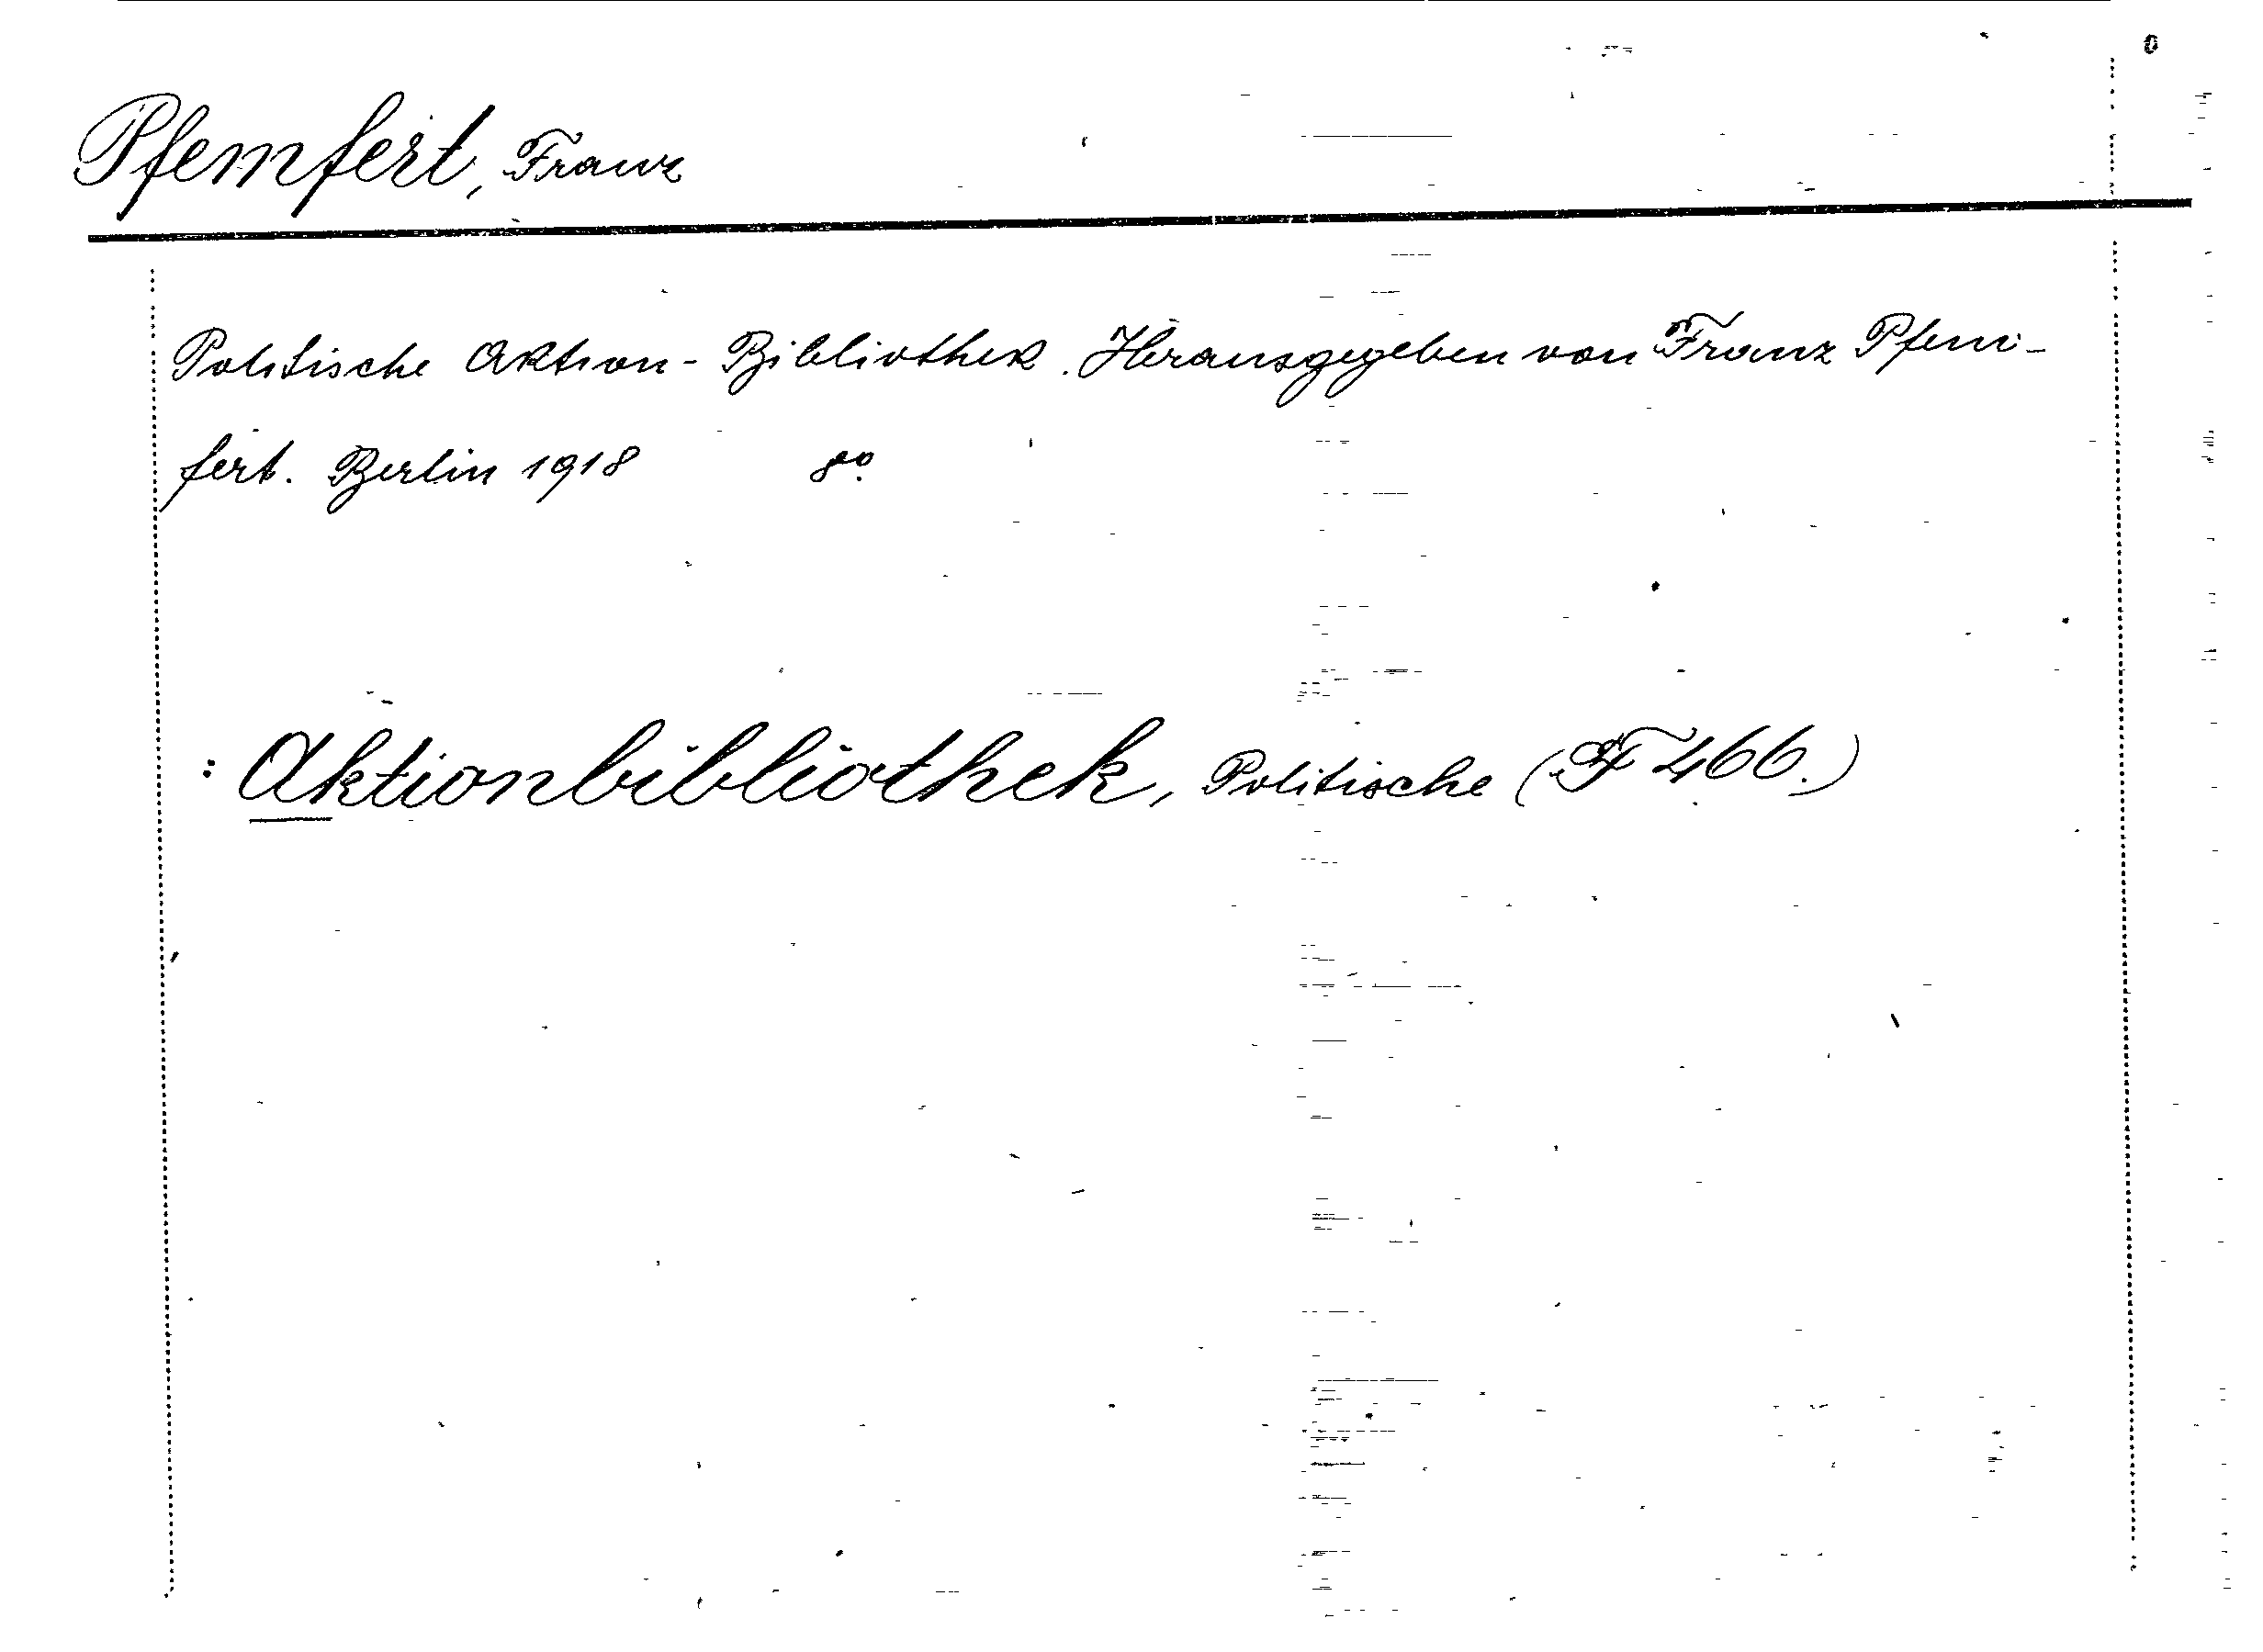 Pfemfert, Franz
Politische Aktion-Bibliothek. Herausgegeben von Franz Pfem-
fert. Berlin 1918 8°.
: Aktionbibliothek, Politische (F 466.)